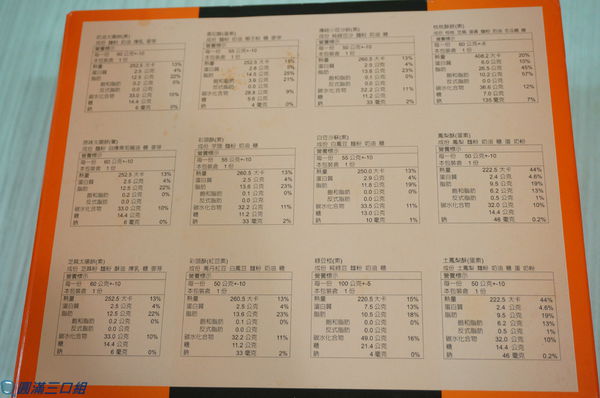 奶油太陽餅(素)
成份 麵粉 奶油 煉乳 麥芽
營養標示
每一份 60 公克+-10
本包裝含 1 份
熱量 252.5 大卡 13%
蛋白質 2.5 公克 4%
脂肪 12.5 公克 22%
飽和脂肪 0.2 公克 0%
反式脂肪 0 公克
碳水化合物 33.0 公克 10%
糖 14.4 公克
鈉 6 毫克 0%
營養標示
每一份 55 公克+-10
本包裝含 1 份
熱量 大卡 15%
蛋白質 2.6 公克 0%
脂肪 14.5 公克 25%
飽和脂肪 3.6 公克 21%
反式脂肪 0 公克
碳水化合物 28.8 公克 9%
糖 9.6 公克
鈉 4 毫克 0%
傳統小豆沙餅(素)
營養標示
每一份 50 公克+-10
本包裝含 1 份
熱量 260.5 大卡 13%
蛋白質 2.5 公克 4%
脂肪 13.6 公克 23%
飽和脂肪 0.1 公克 0%
反式脂肪 0 公克
碳水化合物 32.2 公克 10%
糖 11.2 公克
鈉 33 毫克 2%
營養標示
每一份 60 公克+-5
本包裝含 1 份
熱量 408.2 大卡 20%
蛋白質 6.0 公克 10%
脂肪 26.5 公克 45%
飽和脂肪 10.2 公克 57%
反式脂肪 0 公克
碳水化合物 36.6 公克 12%
糖 7.0 公克
鈉 135 毫克 7%
營養標示
每一份 60 公克+-10
本包裝含 1 份
熱量 252.5 大卡 13%
蛋白質 2.5 公克 4%
脂肪 12.5 公克 22%
飽和脂肪 6.2 公克 0%
反式脂肪 0 公克
碳水化合物 33.0 公克 10%
糖 14.4 公克
鈉 6 毫克 0%
彩頭酥(素)
成份 芋頭 麵粉 奶油 糖
營養標示
每一份 55 公克+-10
本包裝含 1 份
熱量 260.5 大卡 13%
蛋白質 2.5 公克 4%
脂肪 13.6 公克 23%
飽和脂肪 0.1 公克 0%
反式脂肪 0 公克
碳水化合物 32.2 公克 10%
糖 11.2 公克
鈉 33 毫克 2%
白豆沙酥(素)
成份 白鳳豆 麵粉 奶油 糖
營養標示
每一份 55 公克+-10
本包裝含 1 份
熱量 250.0 大卡 13%
蛋白質 2.9 公克 5%
脂肪 11.8 公克 19%
飽和脂肪 0.1 公克 0%
反式脂肪 0 公克
碳水化合物 33.5 公克 11%
糖 13.0 公克
鈉 10 毫克 1%
鳳梨酥(蛋素)
成份 鳳梨 麵粉 奶油 糖 蛋 奶粉
營養標示
每一份 50 公克+-10
本包裝含 1 份
熱量 222.5 大卡 44%
蛋白質 4.4 公克 6%
脂肪 9.5 公克 19%
飽和脂肪 6.2 公克 13%
反式脂肪 0.5 公克 1%
碳水化合物 32.0 公克 10%
糖 14.4 公克
鈉 46 毫克 0.2%
芝麻太陽餅(素)
成份 芝麻粉 麵粉 酥油 煉乳 糖 麥芽
營養標示
每一份 60 公克+-10
本包裝含 1 份
熱量 252.5 大卡 13%
蛋白質 2.5 公克 4%
脂肪 12.5 公克 22%
飽和脂肪 0.2 公克 0%
反式脂肪 0 公克
碳水化合物 33.0 公克 10%
糖 14.4 公克
鈉 6 毫克 0%
彩頭酥(紅豆素)
成份 萬丹紅豆 白鳳豆 麵粉 奶油 糖
營養標示
每一份 55 公克+-10
本包裝含 1 份
熱量 260.5 大卡 13%
蛋白質 2.5 公克 4%
脂肪 13.6 公克 23%
飽和脂肪 0.1 公克 0%
反式脂肪 0 公克
碳水化合物 32.2 公克 10%
糖 11.2 公克
鈉 33 毫克 2%
綠豆椪(素)
成份 純綠豆 麵粉 奶油 糖
營養標示
每一份 100 公克+-5
本包裝含 1 份
熱量 220.5 大卡 15%
蛋白質 7.5 公克 13%
脂肪 10.5 公克 18%
飽和脂肪 0 公克
反式脂肪 0 公克
碳水化合物 49.0 公克 16%
糖 21.4 公克
鈉 4 毫克 0%
土鳳梨酥(蛋素)
成份 土鳳梨 麵粉 奶油 糖 蛋 奶粉
營養標示
每一份 50 公克+-10
本包裝含 1 份
熱量 222.5 大卡 44%
蛋白質 4.4 公克 6%
脂肪 9.5 公克 19%
飽和脂肪 6.2 公克 13%
反式脂肪 0.5 公克 1%
碳水化合物 32.0 公克 10%
糖 14.4 公克
鈉 46 毫克 0.2%
圓滿三口組